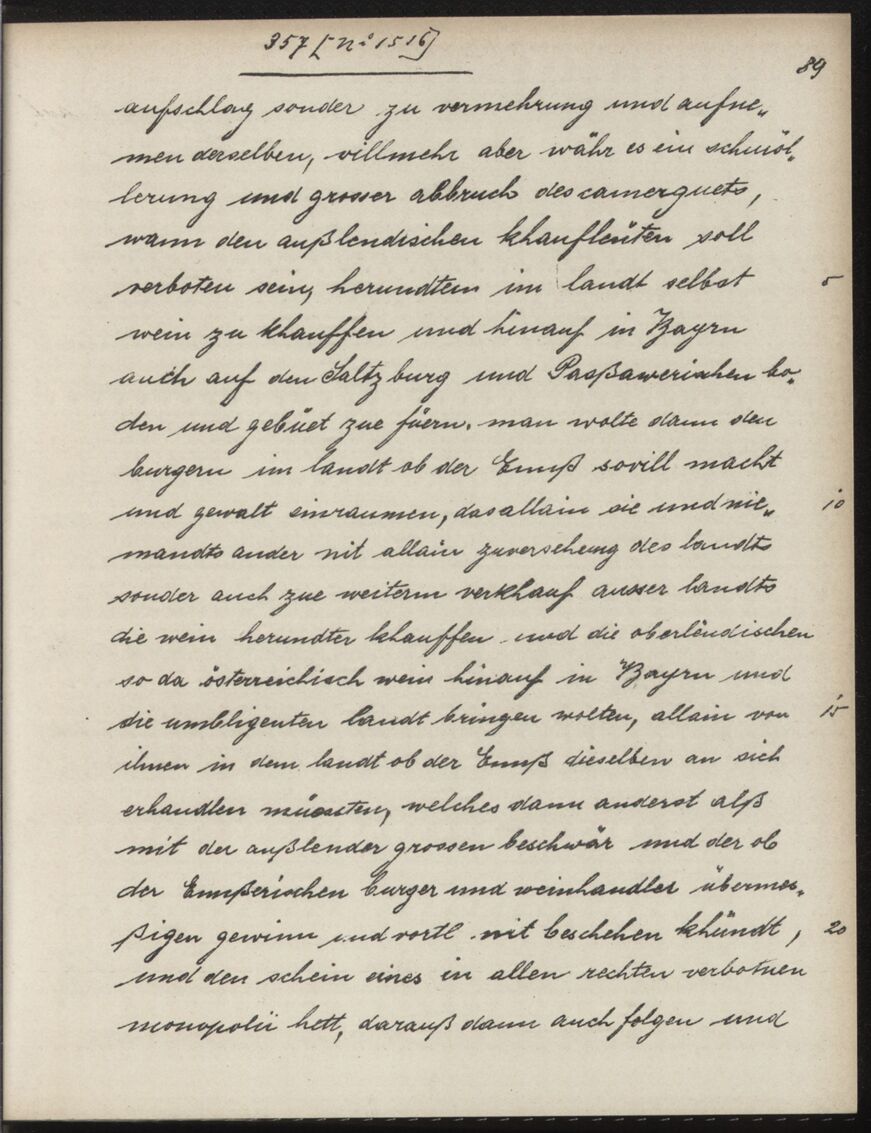 357 [n° 1516]
89
aufschlag sonder zu vermehrung und aufne„
men derselben, villmehr aber währ es ein schmöl„
lerung und grosser abbruch des camerguets,
wann den außlendischen khaufleüten soll
verboten sein, herundten im landt selbst 5
wein zu khauffen und hinauf in Bayrn
auch auf den Saltzburg und Paßawerischen bo„
den und gebüet zue füern. man wolte dann den
burgern im landt ob der Ennß sovill macht
und gewalt einraumen, das allain sie und nie„ 10
mandts ander nit allain zuversehung des landts
sonder auch zue weiterm verkhauf ausser landts
die wein herundter khauffen und die oberlendischen
so da österreichisch wein hinauf in Bayrn und
die umbligenten landt bringen wolten, allain von 15
ihnen in dem landt ob der Ennß dieselben an sich
erhandlen müessten, welches dann anderst alß
mit der außlender grossen beschwär und der ob
der Ennßerischen burger und weinhandler übermes„
ßigen gewinn und vortl nit beschehen khündt, 20
und den schein eines in allen rechten verbotnen
monopolii hett, darauß dann auch folgen und